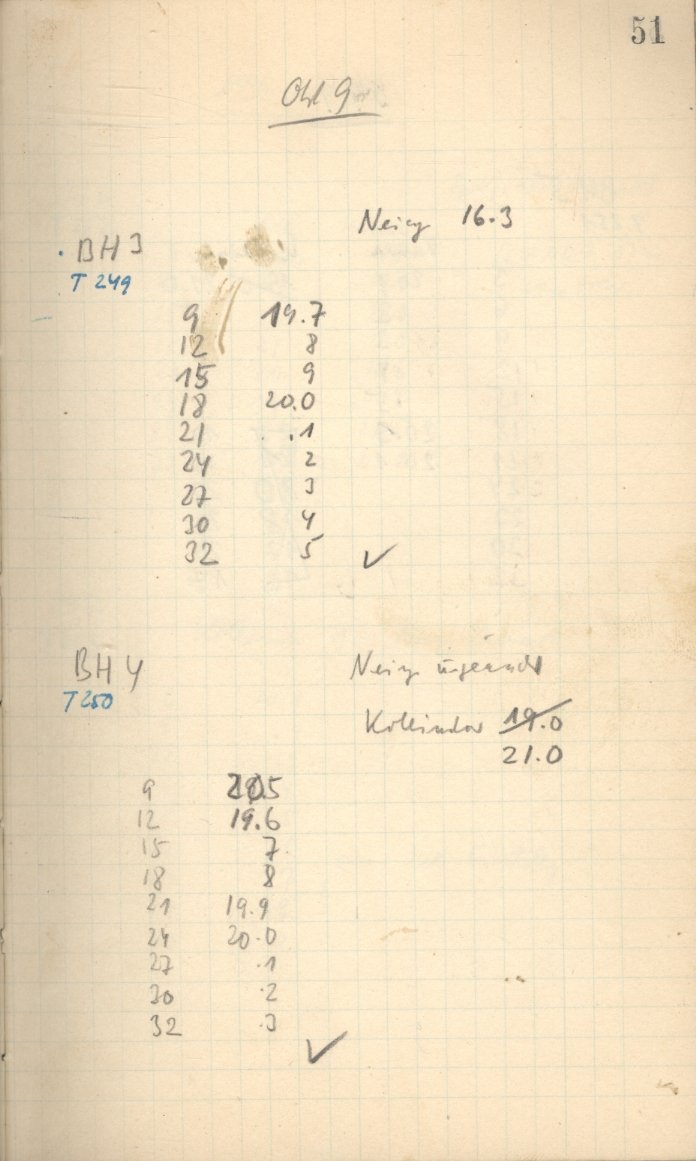 51
Obl. 9.
Neig 16.3
BH3
T 249
9 19.7
12 8
15 9
18 20.0
21 .1
24 2
27 3
30 4
32 5 ✓
BH 4
T 250
Neig
Kollimator 19.0
21.0
9
12 19.6
15 7
18 8
21 19.9
24 20.0
27 .1
30 .2
32 .3
✓